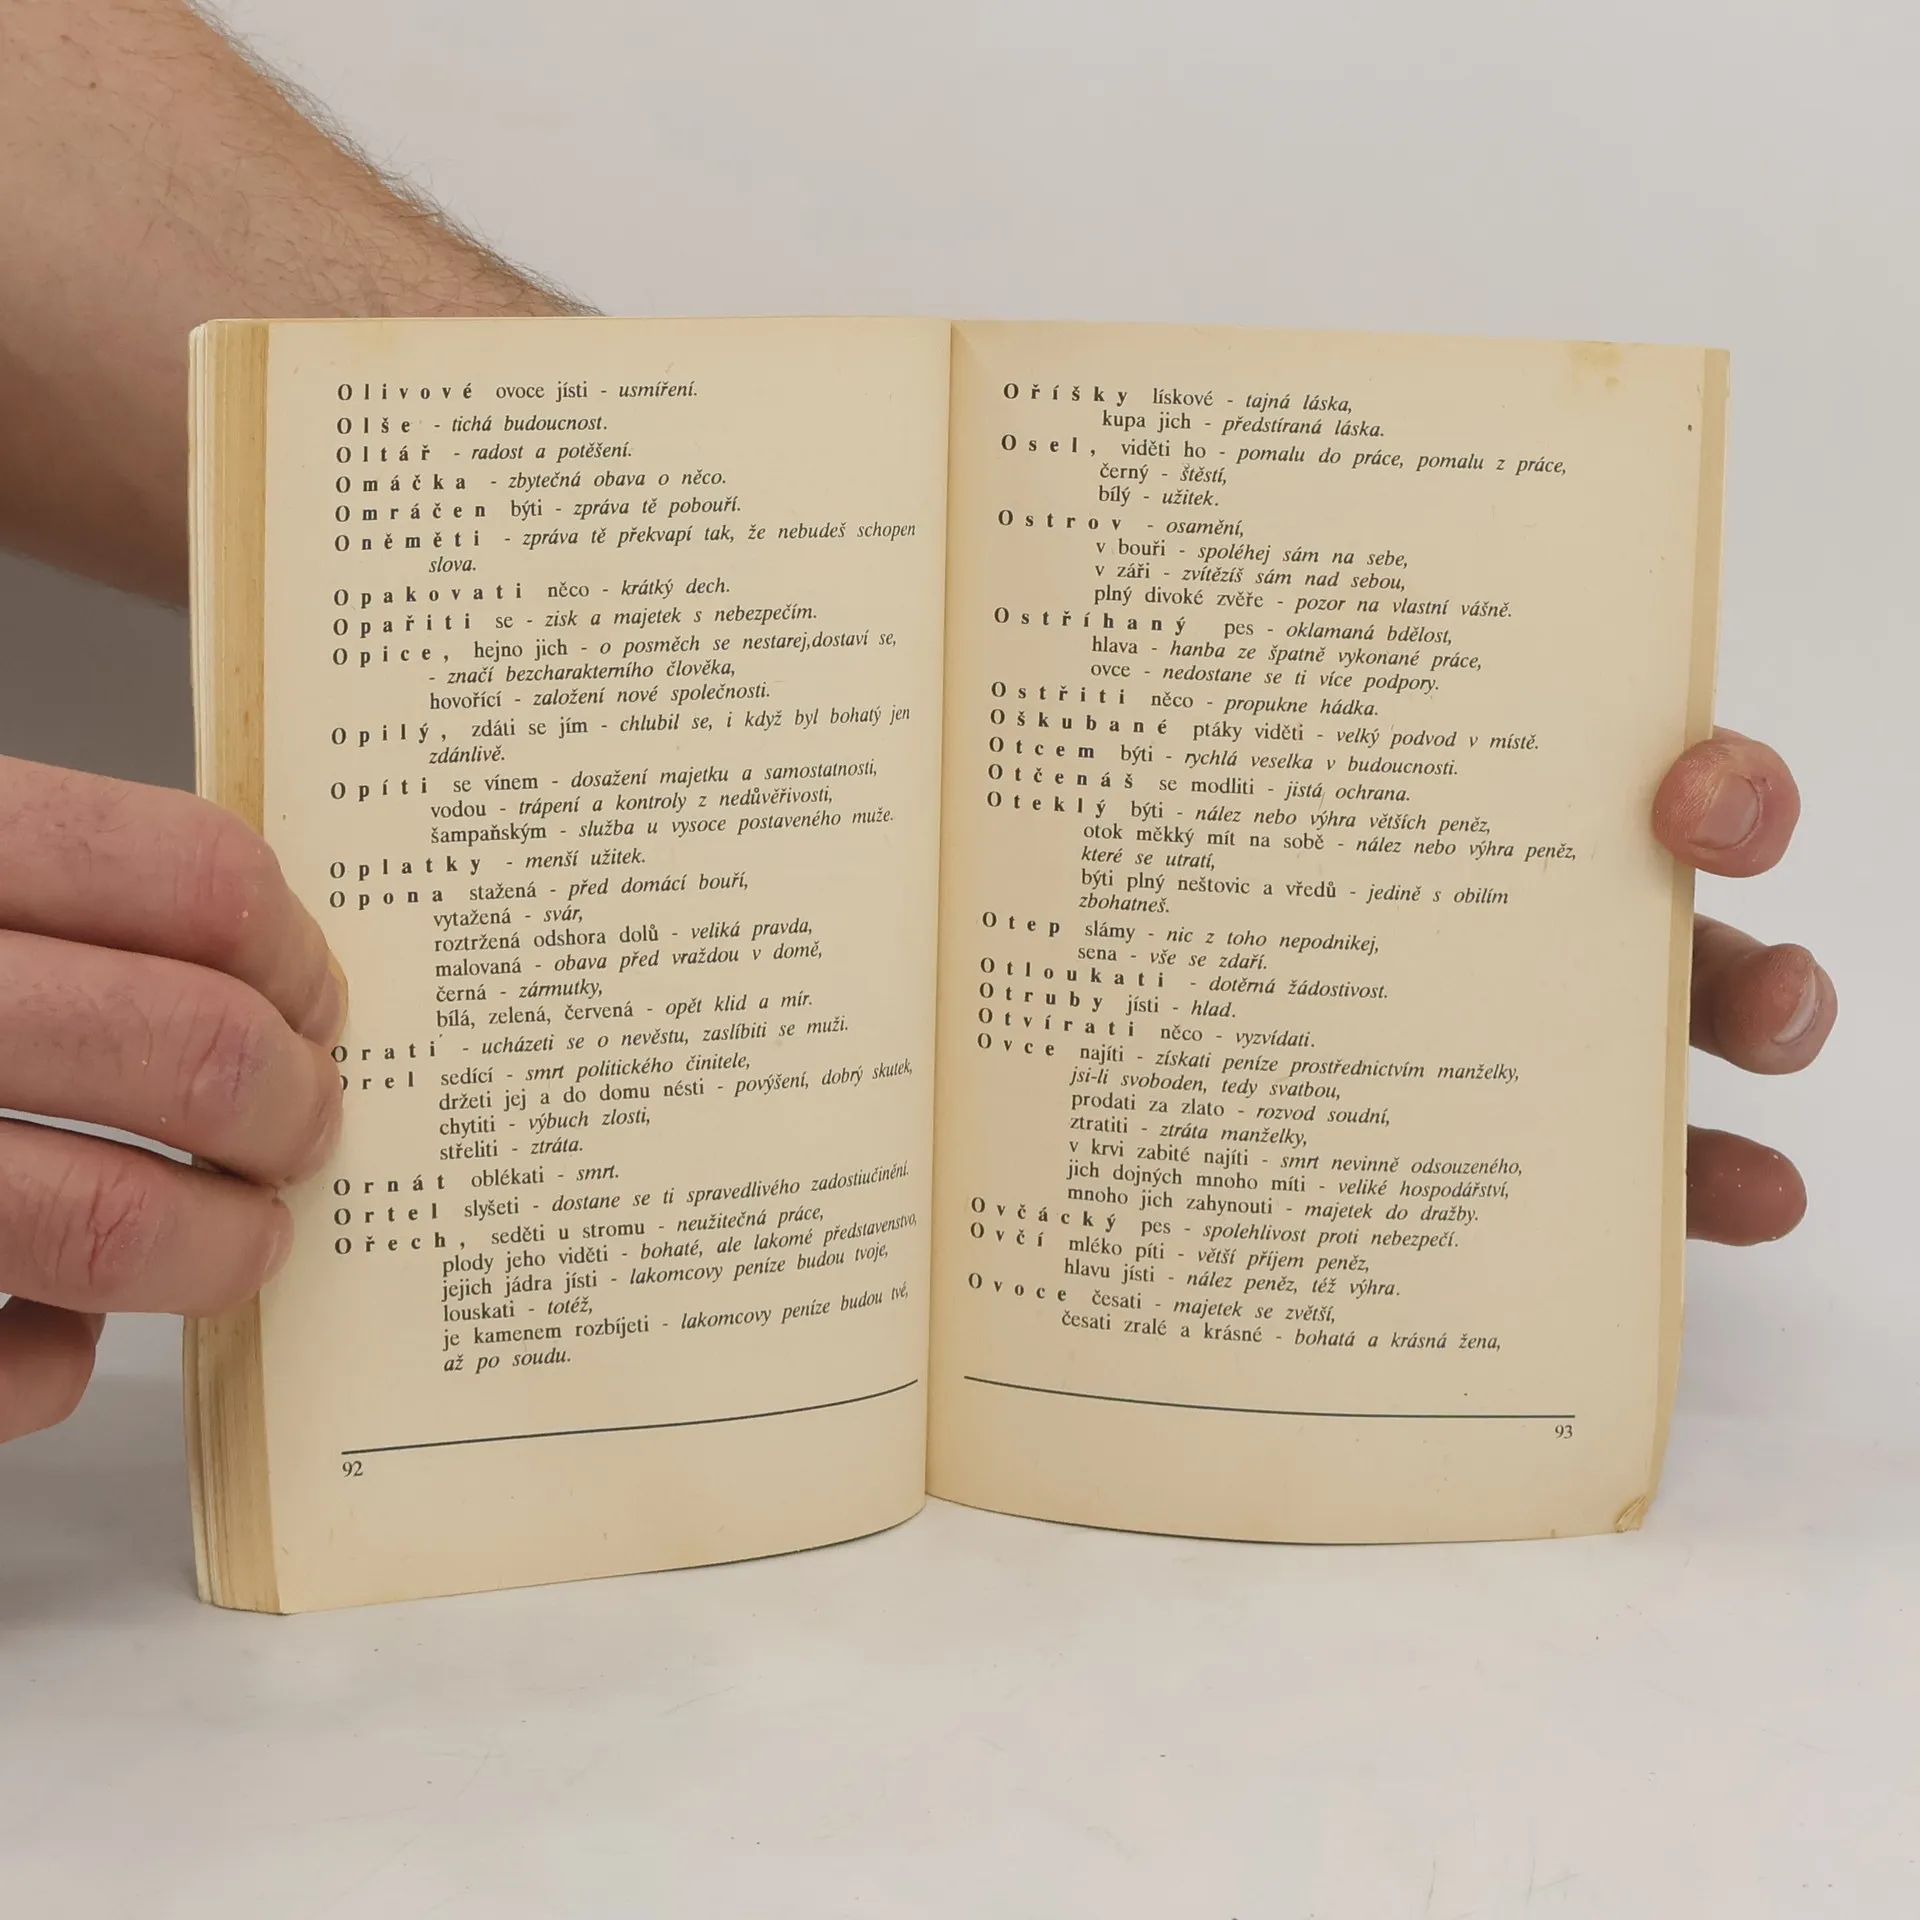 Olivové ovoce jísti - usmíření.
Olše - tichá budoucnost.
Oltář - radost a potěšení.
Omáčka - zbytečná obava o něco.
Omráčen býti - zpráva tě pobouří.
Oněměti - zpráva tě překvapí tak, že nebudeš schopen
slova.
Opakovati něco - krátký dech.
Opařiti se - zisk a majetek s nebezpečím.
Opice, hejno jich - o posměch se nestarej,dostaví se,
- značí bezcharakterního člověka,
hovořící - založení nové společnosti.
Opilý, zdáti se jím - chlubil se, i když byl bohatý jen
zdánlivě.
Opíti se vínem - dosažení majetku a samostatnosti,
vodou - trápení a kontroly z nedůvěřivosti,
šampaňským - služba u vysoce postaveného muže.
Oplatky - menší užitek.
Opona stažená - před domácí bouří,
vytažená - svár,
roztržená odshora dolů - veliká pravda,
malovaná - obava před vraždou v domě,
černá - zármutky,
bílá, zelená, červená - opět klid a mír.
Orati - ucházeti se o nevěstu, zaslíbiti se muži.
Orel sedící - smrt politického činitele,
držeti jej a do domu nésti - povýšení, dobrý skutek,
chytiti - výbuch zlosti,
střeliti - ztráta.
Ornát oblékati - smrt.
Ortel slyšeti - dostane se ti spravedlivého zadostiučinění.
Ořech, seděti u stromu - neužitečná práce,
plody jeho viděti - bohaté, ale lakomé představenstvo,
jejich jádra jísti - lakomcovy peníze budou tvoje,
louskati - totéž,
je kamenem rozbíjeti - lakomcovy peníze budou tvé,
až po soudu.
92
Oříšky lískové - tajná láska,
kupa jich - předstíraná láska.
Osel, viděti ho - pomalu do práce, pomalu z práce,
černý - štěstí,
bílý - užitek.
Ostrov - osamění,
v bouři - spoléhej sám na sebe,
v záři - zvítězíš sám nad sebou,
plný divoké zvěře - pozor na vlastní vášně.
Ostříhaný pes - oklamaná bdělost,
hlava - hanba ze špatně vykonané práce,
ovce - nedostane se ti více podpory.
Ostřiti něco - propukne hádka.
Oškubané ptáky viděti - velký podvod v místě.
Otcem býti - rychlá veselka v budoucnosti.
Otčenáš se modliti - jistá ochrana.
Oteklý býti - nález nebo výhra větších peněz,
otok měkký mít na sobě - nález nebo výhra peněz,
které se utratí,
býti plný neštovic a vředů - jedině s obilím
zbohatneš.
Otep slámy - nic z toho nepodnikej,
sena - vše se zdaří.
Otloukati - dotěrná žádostivost.
Otruby jísti - hlad.
Otvírati něco - vyzvídati.
Ovce najíti - získati peníze prostřednictvím manželky,
jsi-li svoboden, tedy svatbou,
prodati za zlato - rozvod soudní,
ztratiti - ztráta manželky,
v krvi zabité najíti - smrt nevinně odsouzeného,
jich dojných mnoho míti - veliké hospodářství,
mnoho jich zahynouti - majetek do dražby.
Ovčácký pes - spolehlivost proti nebezpečí.
Ovčí mléko píti - větší příjem peněz,
hlavu jísti - nález peněz, též výhra.
Ovoce česati - majetek se zvětší,
česati zralé a krásné - bohatá a krásná žena,
93